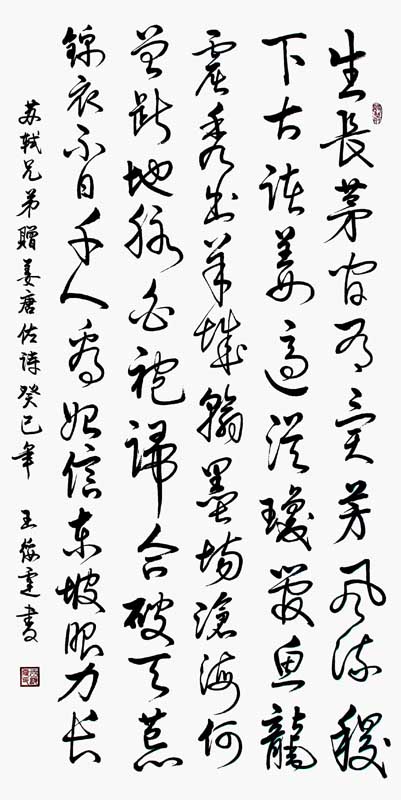 生長茅間有異芳風流稷
下古諸姜適從瓊管魚龍
窟秀出羊城翰墨場滄海何
曾斷地脉白袍端合破天荒
錦衣不日千人看始信東坡眼力長
苏軾兄弟贈姜唐佐詩癸巳年 王書